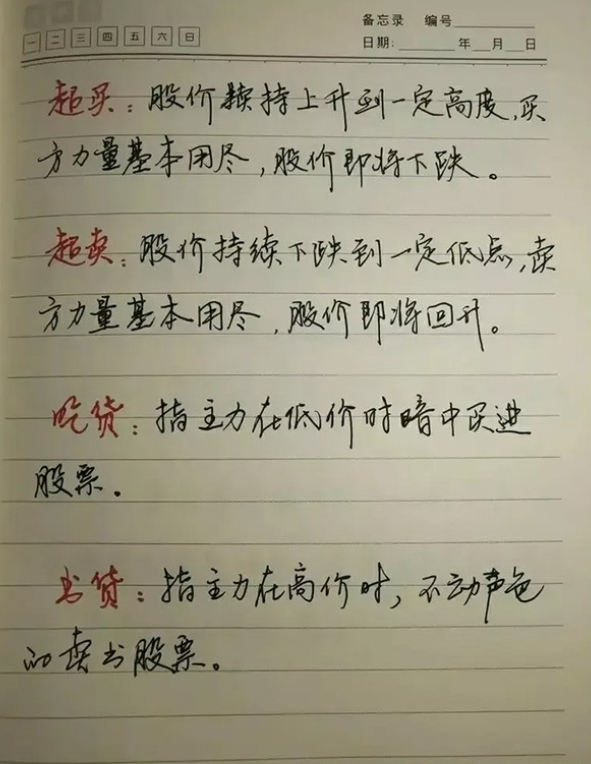 备忘录 编号
一 二 三 四 五 六 日
日期: 年 月 日
超买：股价续持上升到一定高度,买
方力量基本用尽,股价即将下跌。
超卖：股价持续下跌到一定低点,卖
方力量基本用尽,股价即将回升。
吃货：指主力在低价时暗中买进
股票。
出货：指主力在高价时,不动声色
的卖出股票。